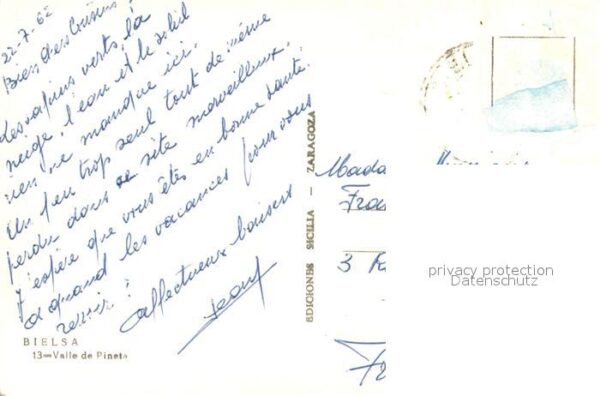 22-7-62
Bien chers Cousins
Les sapins verts, la
neige, l'eau et le soleil
rien ne manque ici.
Un peu trop seul tout de même
perdu dans ce site merveilleux.
J'espère que vous êtes en bonne santé.
a quand les vacances pour vous
revoir?
affectueux baisers
BIELSA
13=Valle de Pineta
EDICIONES SICILIA - ZARAGOZA
Mada
3 R
privacy protection
Datenschutz